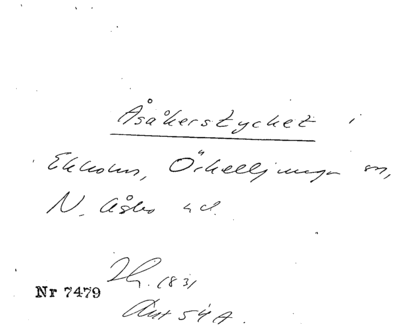 Åsåkerstycket i
Ekholm, Örkelljunga sn,
N. Åsbo hd.
1831
Nr 7479
Akt 54A.